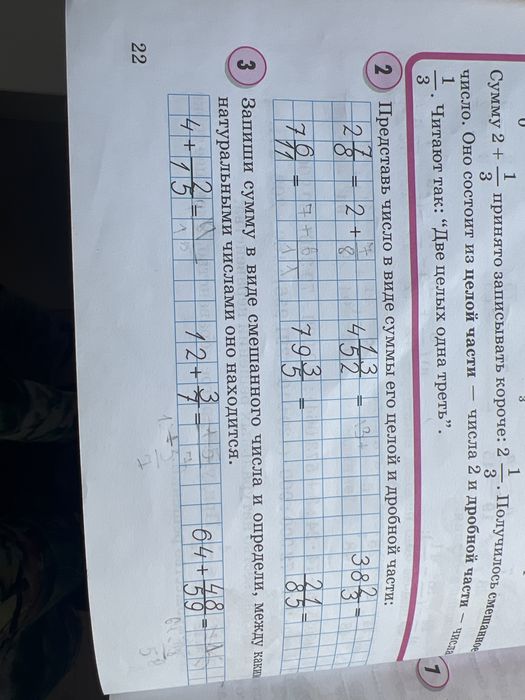 Сумму 2 + 1/3 принято записывать короче: 2 1/3. Получилось смешанное
число. Оно состоит из целой части — числа 2 и дробной части — числа
1/3. Читают так: "Две целых одна треть".
7
2 Представь число в виде суммы его целой и дробной части:
2 7/8 = 2 + 7/8 4 13/52 = 38 2/3 =
7 6/11 = 7 + 6/11 79 3/5 = 21/85 =
3 Запиши сумму в виде смешанного числа и определи, между
натуральными числами оно находится.
4 + 2/15 = 12 + 3/7 = 64 + 48/59 =
22